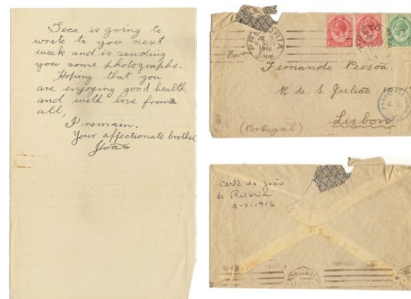 Teca is going to
write to you next
week and is sending
you some photographs.
Hoping that you
are enjoying good health
and with love from
all,
I remain,
Your affectionate brother,
João
PRETORIA
1916
Fernando Pessoa
R. de S. Julião
Lisbon
(Portugal)
Carta de João
de Pretoria
1916